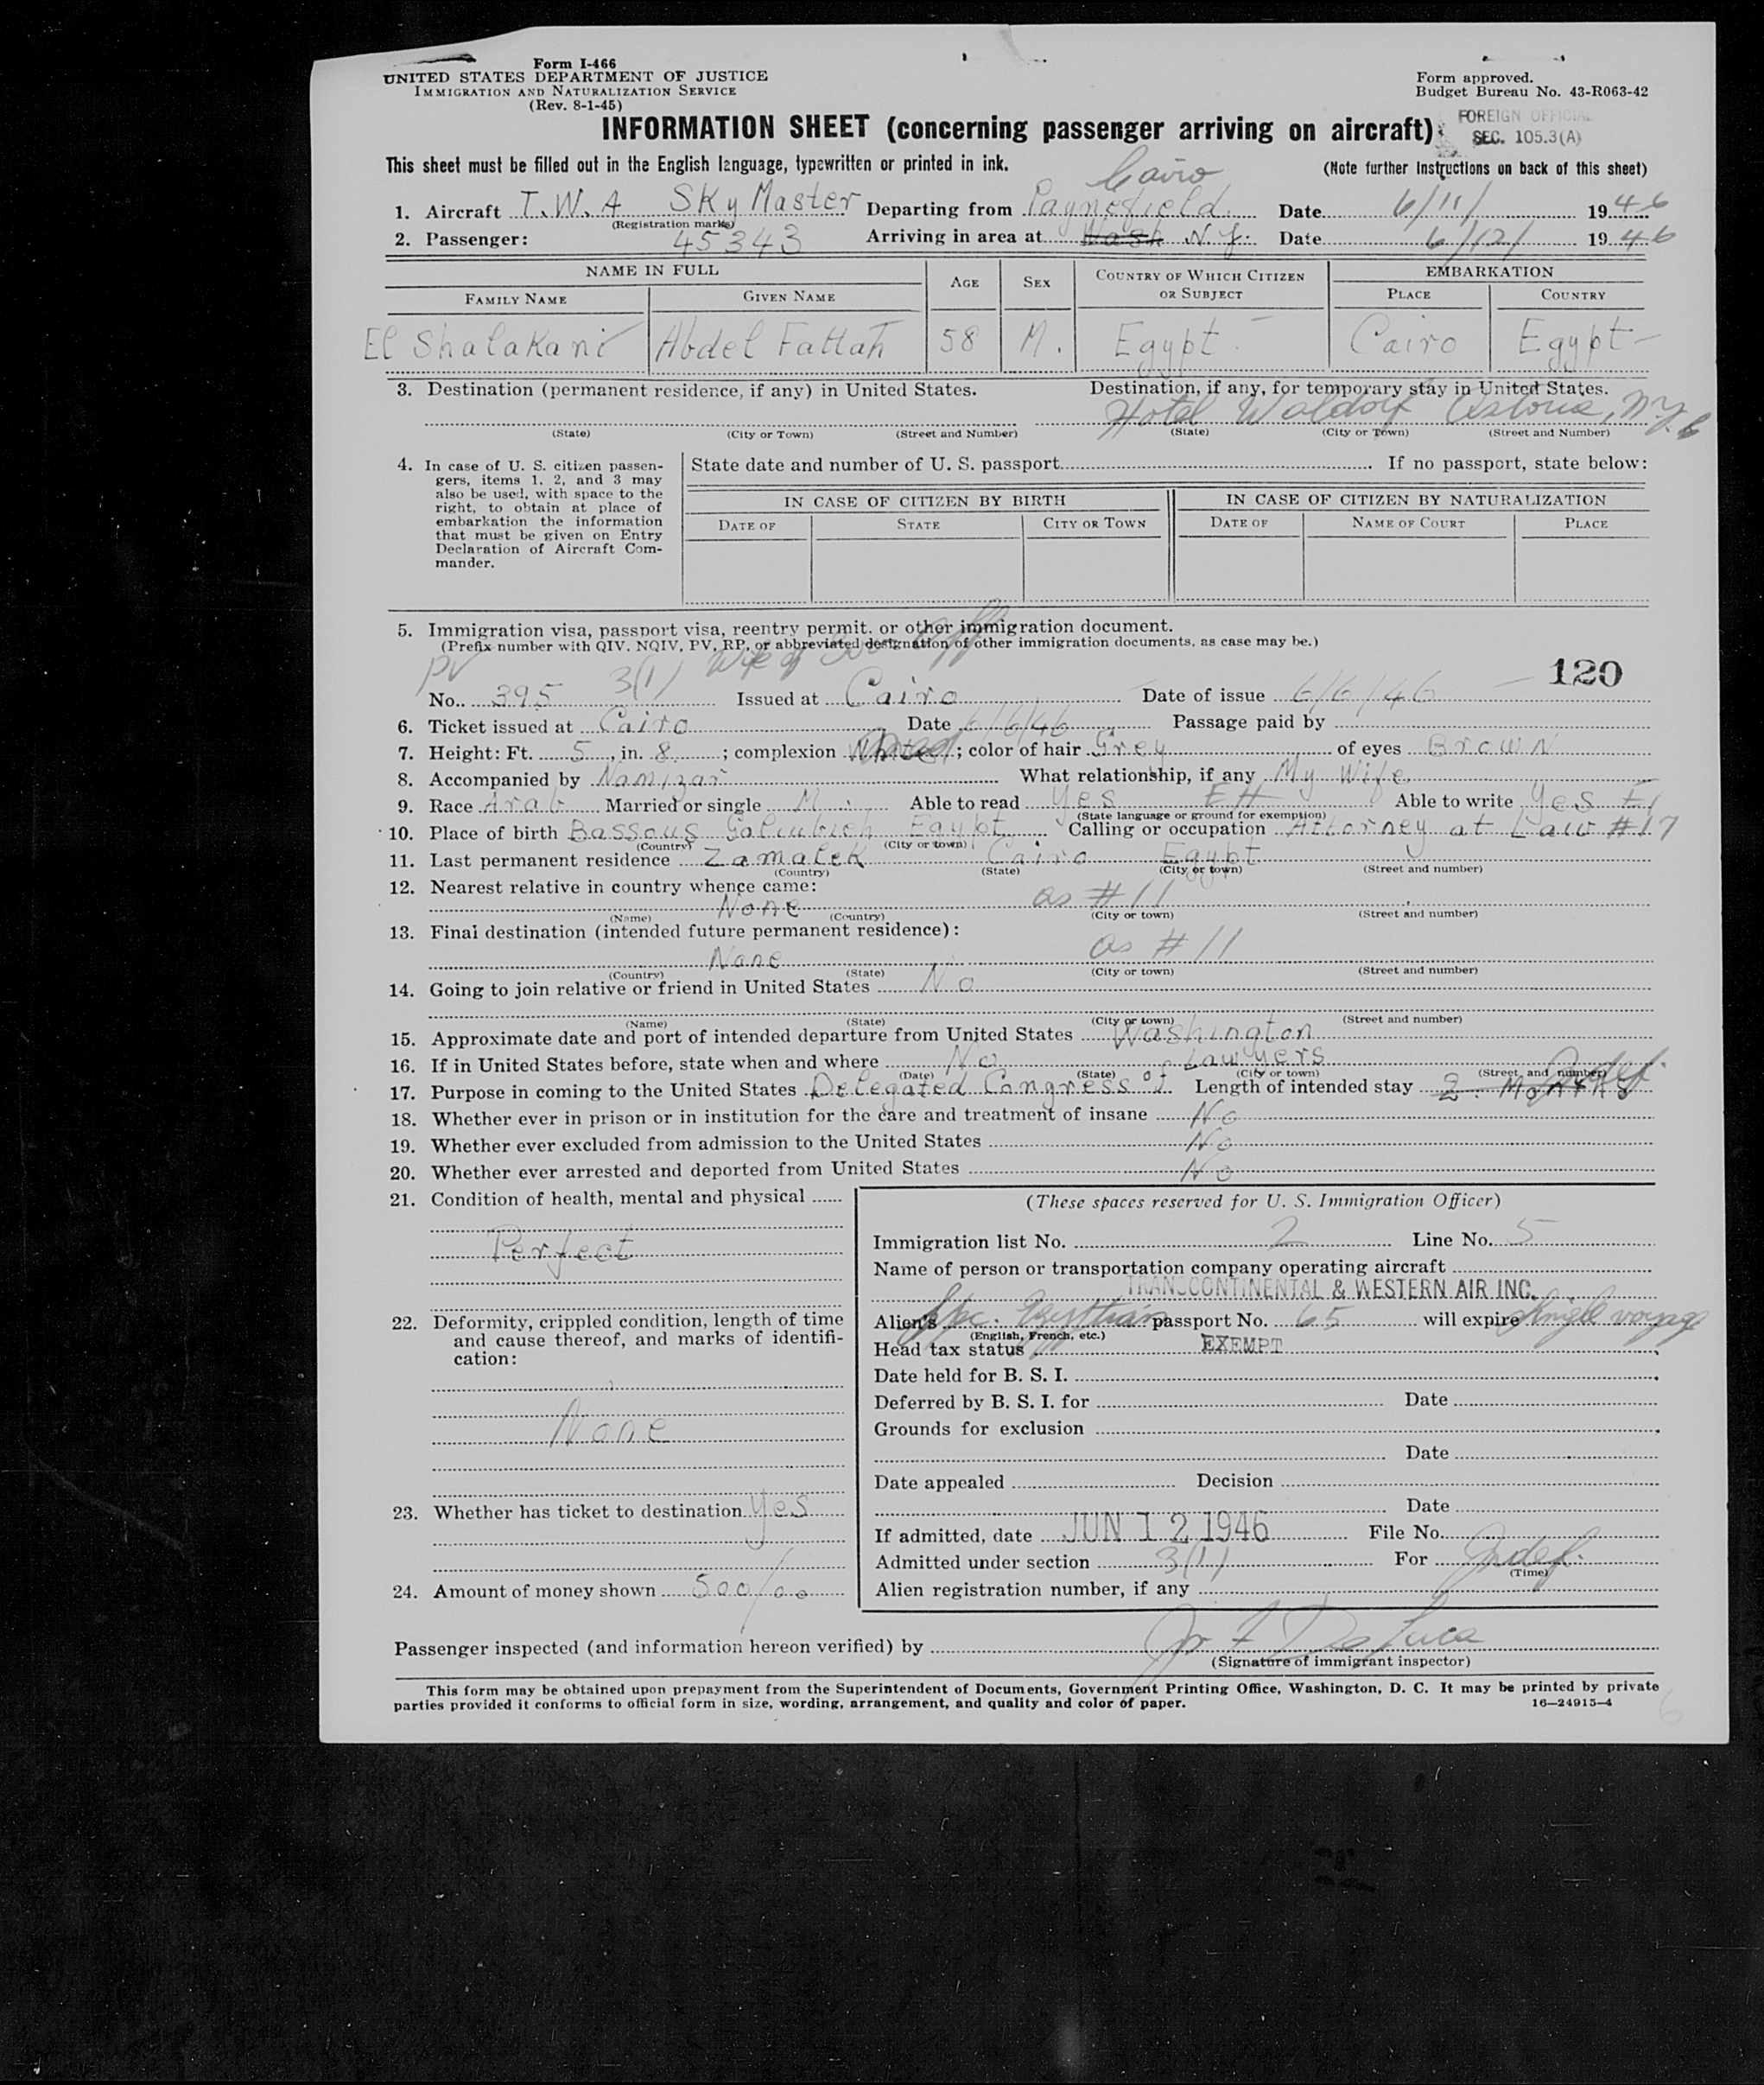 Form I-466
UNITED STATES DEPARTMENT OF JUSTICE
IMMIGRATION AND NATURALIZATION SERVICE
(Rev. 8-1-45)
Form approved.
Budget Bureau No. 43-R063-42
INFORMATION SHEET (concerning passenger arriving on aircraft)
FOREIGN OFFICIAL
SEC. 105.3(A)
This sheet must be filled out in the English language, typewritten or printed in ink.
(Note further Instructions on back of this sheet)
Cairo
1. Aircraft T.W.A Sky Master Departing from Paynefield Date 6/11/ 1946
(Registration marks)
2. Passenger: 45343 Arriving in area at Wash N.Y. Date 6/12/ 1946
NAME IN FULL AGE SEX COUNTRY OF WHICH CITIZEN OR SUBJECT EMBARKATION
FAMILY NAME GIVEN NAME PLACE COUNTRY
El Shalakani Abdel Fattah 58 M. Egypt Cairo Egypt
3. Destination (permanent residence, if any) in United States. Destination, if any, for temporary stay in United States.
Hotel Waldorf Astoria, NY
(State) (City or Town) (Street and Number) (State) (City or Town) (Street and Number)
4. In case of U. S. citizen passengers, items 1, 2, and 3 may also be used, with space to the right, to obtain at place of embarkation the information that must be given on Entry Declaration of Aircraft Commander.
State date and number of U. S. passport. If no passport, state below:
IN CASE OF CITIZEN BY BIRTH IN CASE OF CITIZEN BY NATURALIZATION
DATE OF STATE CITY OR TOWN DATE OF NAME OF COURT PLACE
5. Immigration visa, passport visa, reentry permit, or other immigration document.
(Prefix number with QIV, NQIV, PV, RP, or abbreviated designation of other immigration documents, as case may be.)
PV 3(1) Wife of
120
No. 395 Issued at Cairo Date of issue 6/6/46
6. Ticket issued at Cairo Date 6/6/46 Passage paid by
7. Height: Ft. 5, in. 8; complexion ; color of hair Grey of eyes Brown
8. Accompanied by Namizar What relationship, if any My Wife
9. Race Arab Married or single M. Able to read Yes Able to write Yes
(State language or ground for exemption)
10. Place of birth Bassous Egypt Calling or occupation Attorney at Law #17
(Country) (City or town)
11. Last permanent residence Zamalek Cairo Egypt
(Country) (State) (City or town) (Street and number)
12. Nearest relative in country whence came:
None as #11
(Name) (Country) (City or town) (Street and number)
13. Final destination (intended future permanent residence):
None as #11
(Country) (State) (City or town) (Street and number)
14. Going to join relative or friend in United States No
(Name) (State) (City or town) (Street and number)
15. Approximate date and port of intended departure from United States Washington
16. If in United States before, state when and where No
(Date) (State) (City or town) (Street and number)
17. Purpose in coming to the United States Delegated Congress of Lawyers Length of intended stay 2 Months Indef.
18. Whether ever in prison or in institution for the care and treatment of insane No
19. Whether ever excluded from admission to the United States No
20. Whether ever arrested and deported from United States No
21. Condition of health, mental and physical
Perfect
22. Deformity, crippled condition, length of time and cause thereof, and marks of identification:
None
23. Whether has ticket to destination Yes
24. Amount of money shown 500/00
(These spaces reserved for U. S. Immigration Officer)
Immigration list No. 2 Line No. 5
Name of person or transportation company operating aircraft
TRANSCONTINENTAL & WESTERN AIR INC.
Alien's passport No. 65 will expire single voyage
(English, French, etc.)
Head tax status EXEMPT
Date held for B. S. I.
Deferred by B. S. I. for Date
Grounds for exclusion
Date
Date appealed Decision
Date
If admitted, date JUN 12 1946 File No.
Admitted under section 3(1) For Indef.
(Time)
Alien registration number, if any
Passenger inspected (and information hereon verified) by
(Signature of immigrant inspector)
This form may be obtained upon prepayment from the Superintendent of Documents, Government Printing Office, Washington, D. C. It may be printed by private
parties provided it conforms to official form in size, wording, arrangement, and quality and color of paper.
16—24915-4